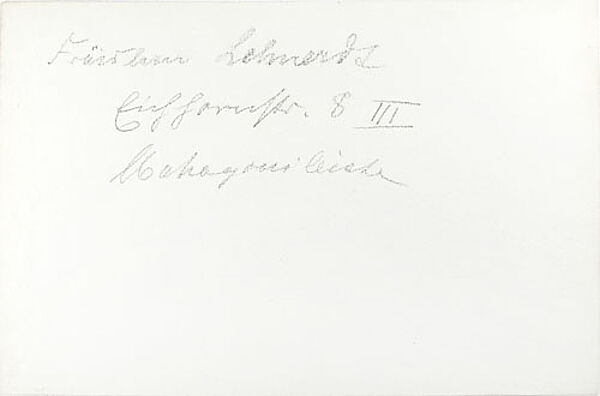 Fräulein Lehnerdt
Eichhornstr. 8 III
Mahagonileiste